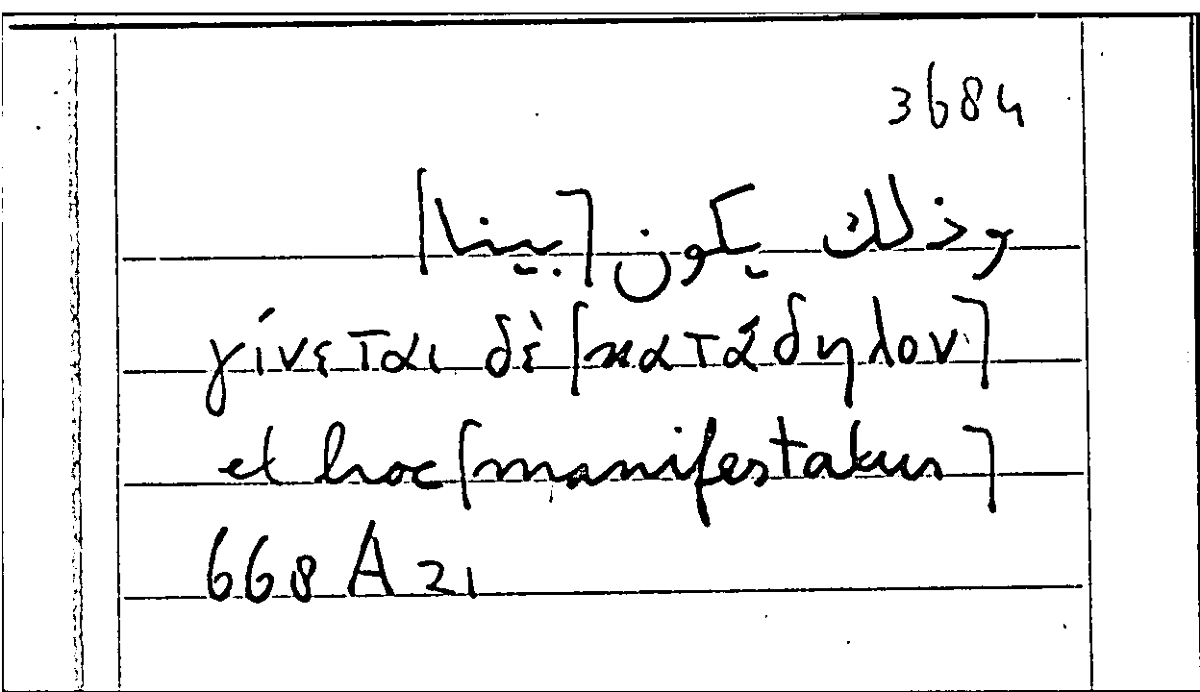 3684
وذلك يكون [بينا]
γίνεται δὲ [κατάδηλον]
et hoc [manifestatur]
668 A 21